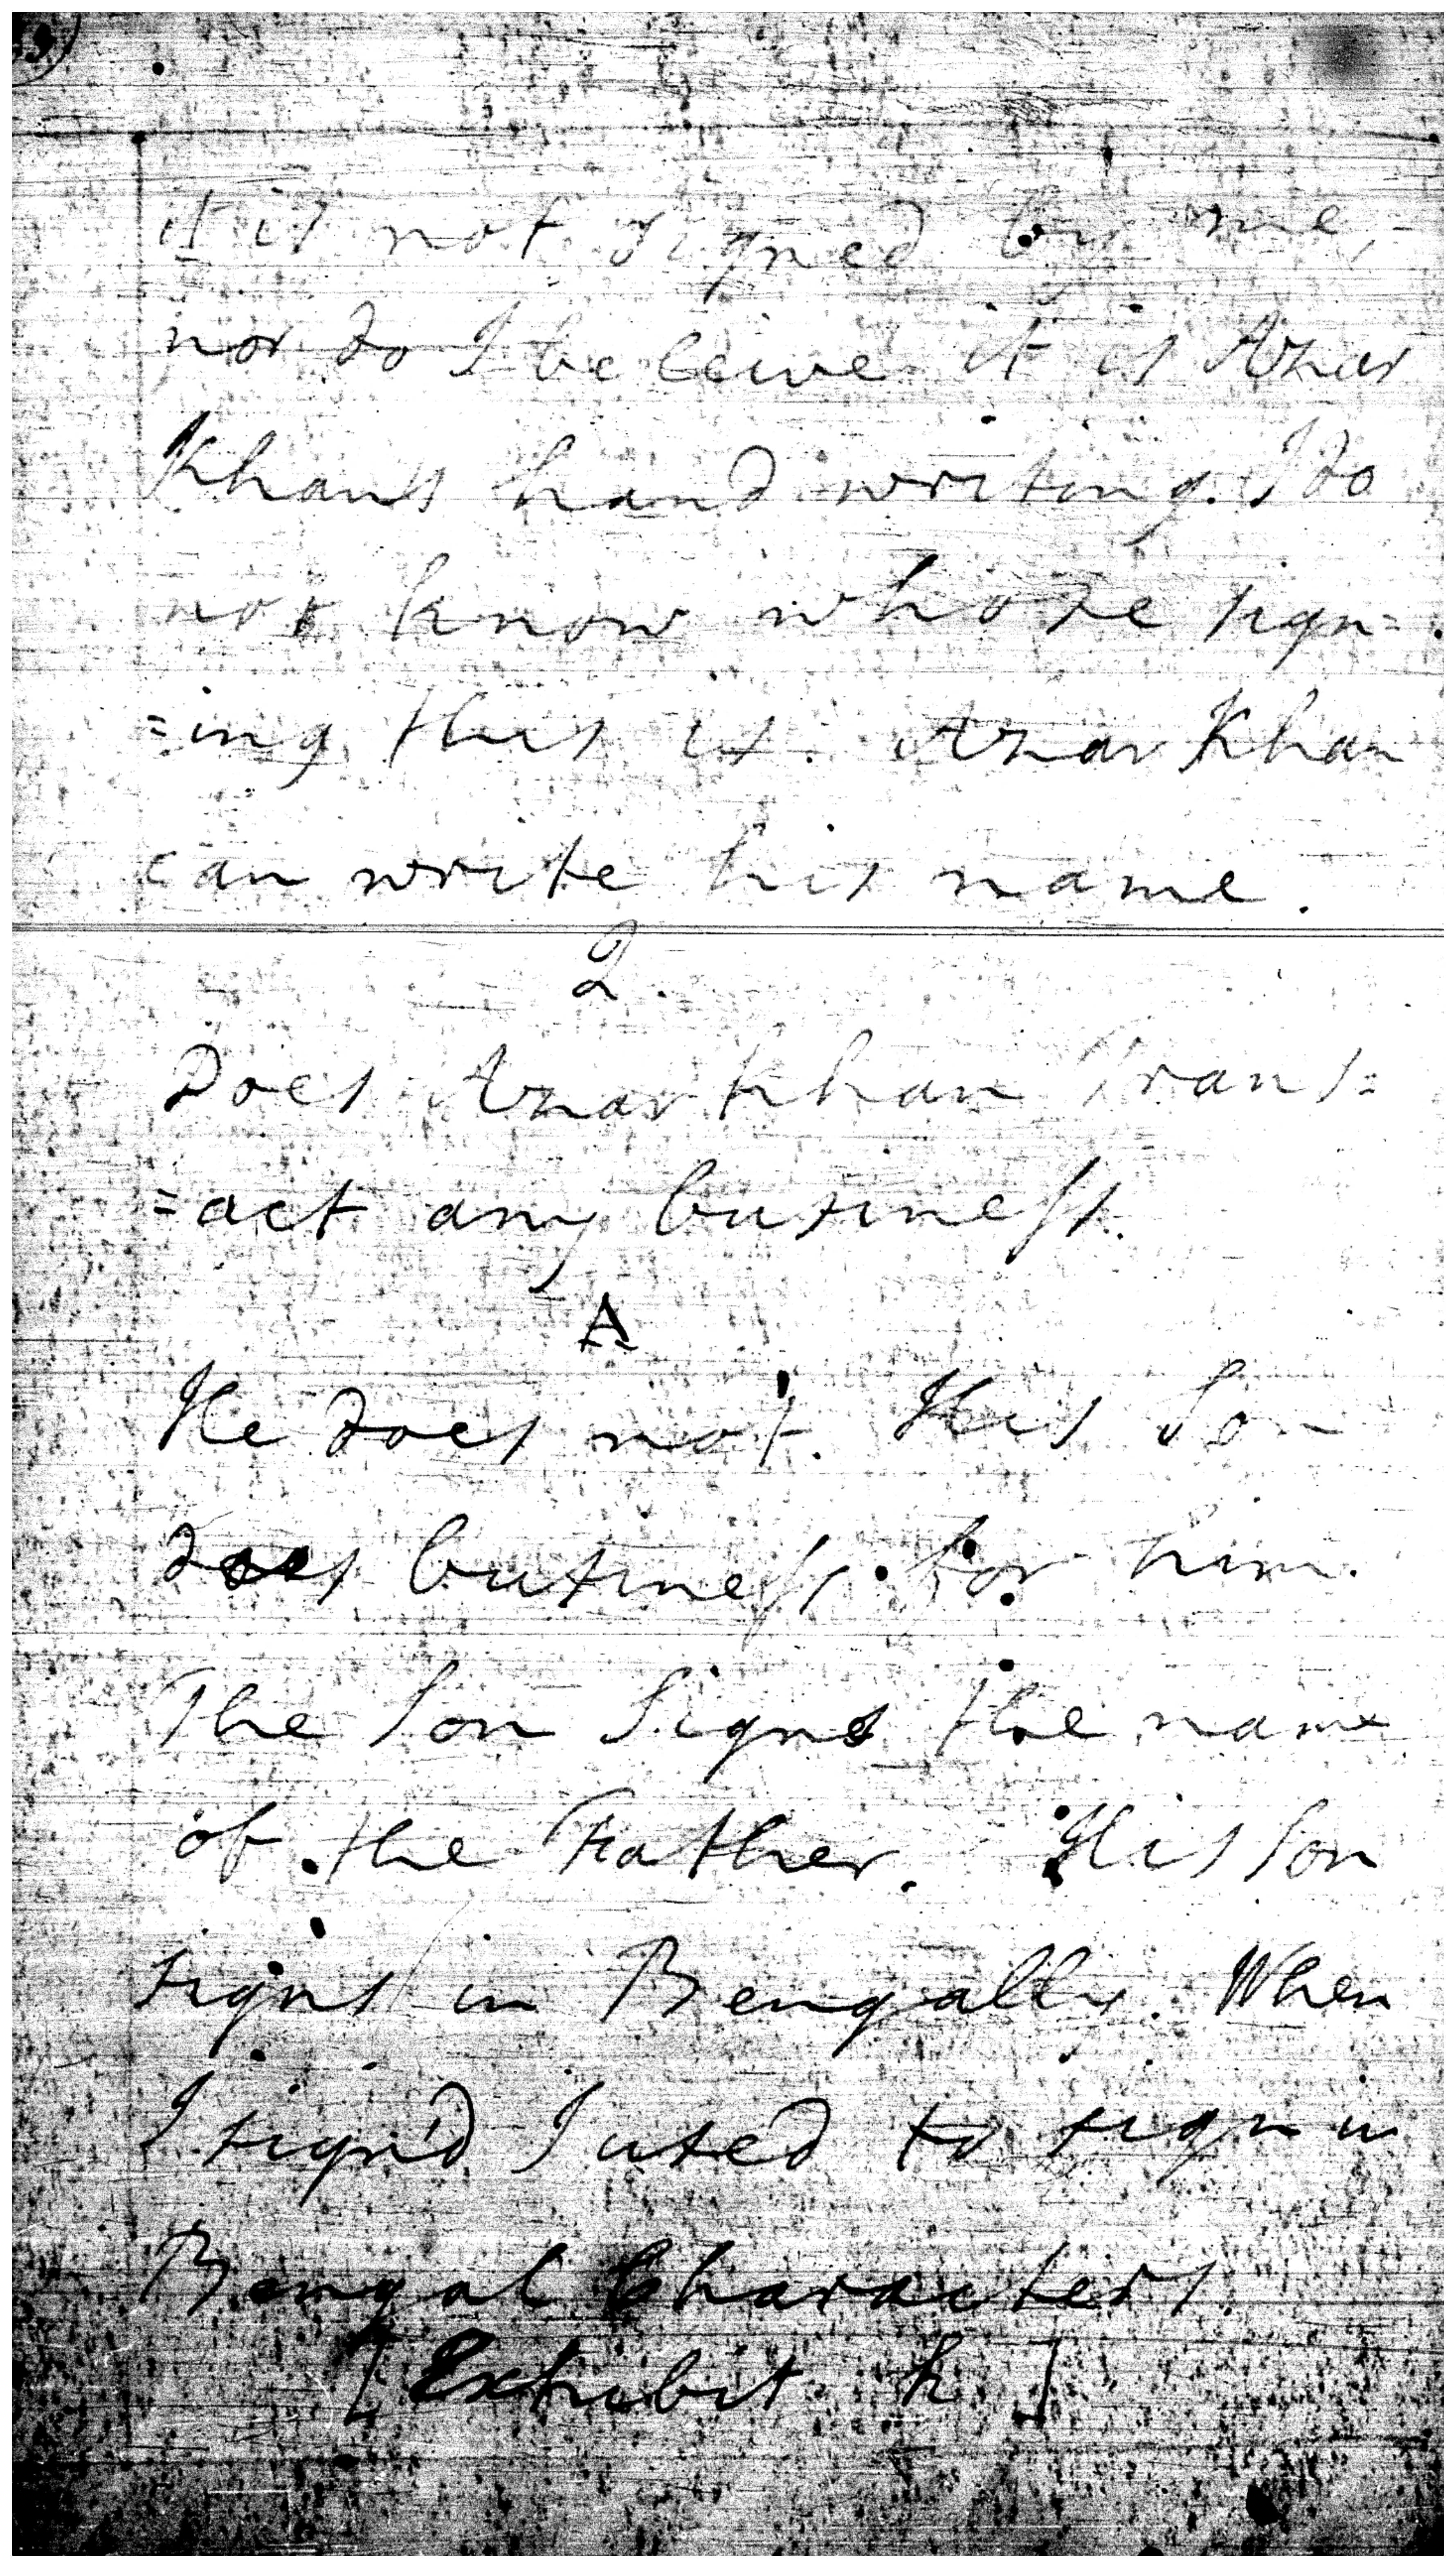 it is not signed by me,
nor do I beleive it is Anar
Khans hand writing. I do
not know whose sign=
=ing this is. Anar Khan
can write his name.
Q.
Does Anar Khan Trans=
=act any business.
A
He does not. His Son
does business for him.
The Son Signs the name
of the Father. His Son
signs in Bengally. When
I sign'd I used to sign in
Bengal Characters.
[Exhibit h]